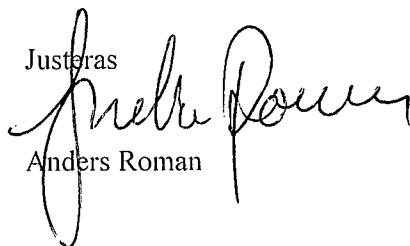 Justeras
Anders Roman
Anders Roman